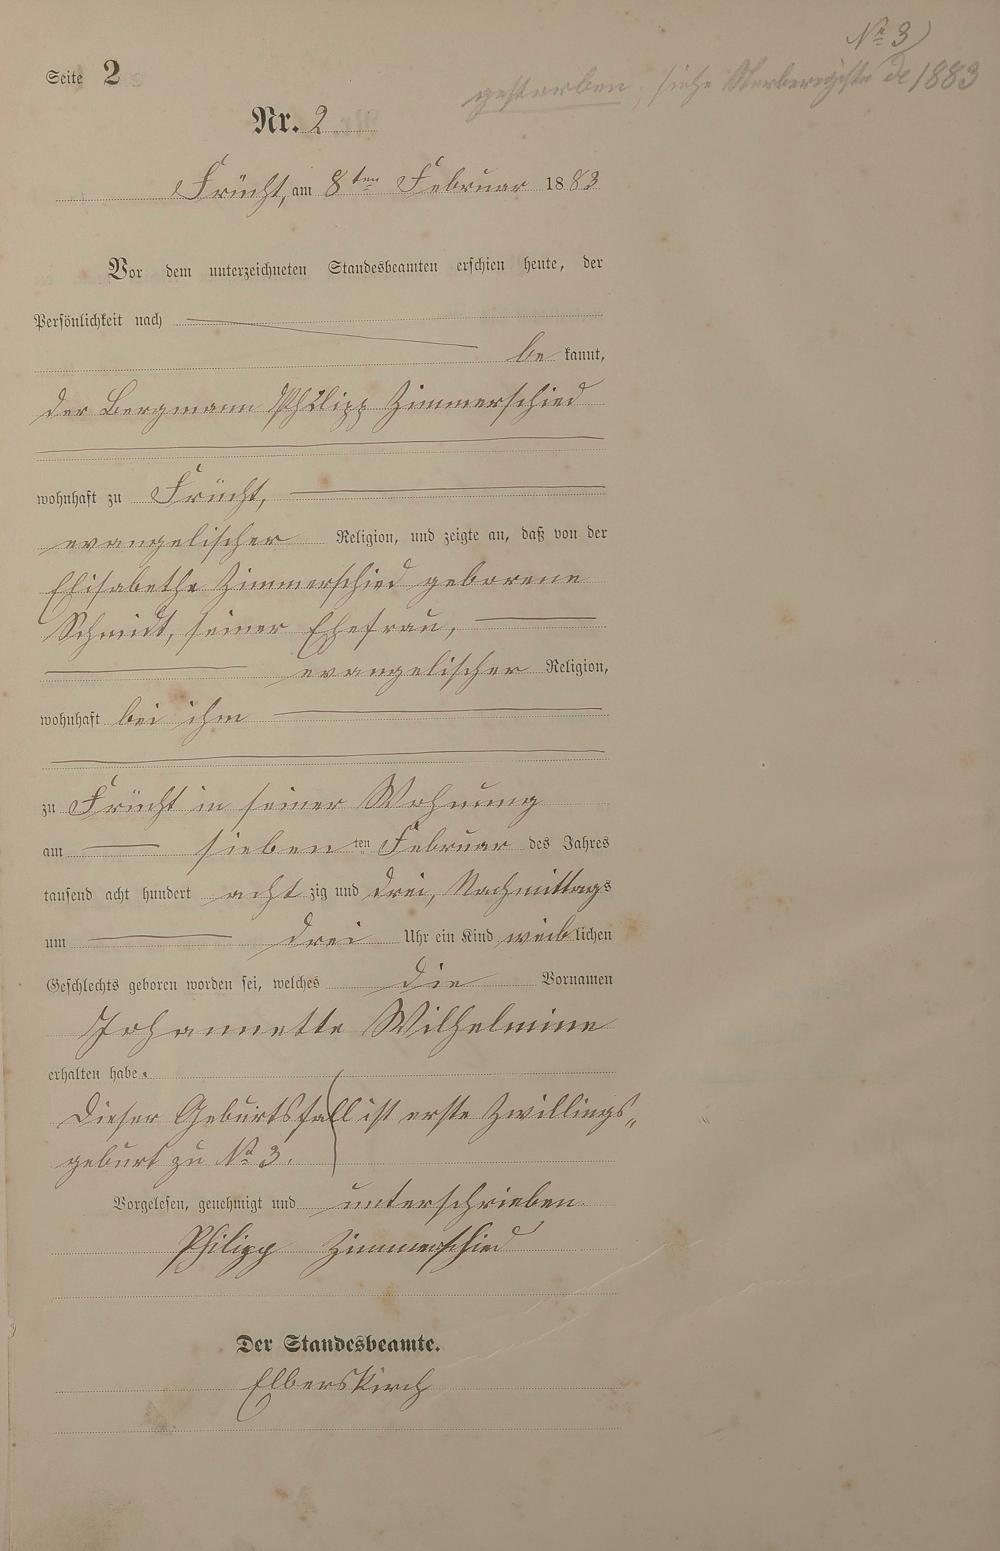 Nº 3)
Seite 2
gestorben, siehe Sterberegister de 1883
Nr. 2
Frücht, am 8ten Februar 1883
Vor dem unterzeichneten Standesbeamten erschien heute, der
Persönlichkeit nach
be kannt,
der Bergmann Philipp Zimmerschied
wohnhaft zu Frücht,
evangelischer Religion, und zeigte an, daß von der
Elisabethe Zimmerschied geborene
Schmidt, seiner Ehefrau,
evangelischer Religion,
wohnhaft bei ihm
zu Frücht in seiner Wohnung
am sieben ten Februar des Jahres
tausend acht hundert acht zig und drei, Nachmittags
um drei Uhr ein Kind weib lichen
Geschlechts geboren worden sei, welches die Vornamen
Johannette Wilhelmine
erhalten habe.
Dieser Geburtsfall ist erste Zwillings„
geburt zu Nº 3.
Vorgelesen, genehmigt und unterschrieben.
Philipp Zimmerschied
Der Standesbeamte.
Elberskirch